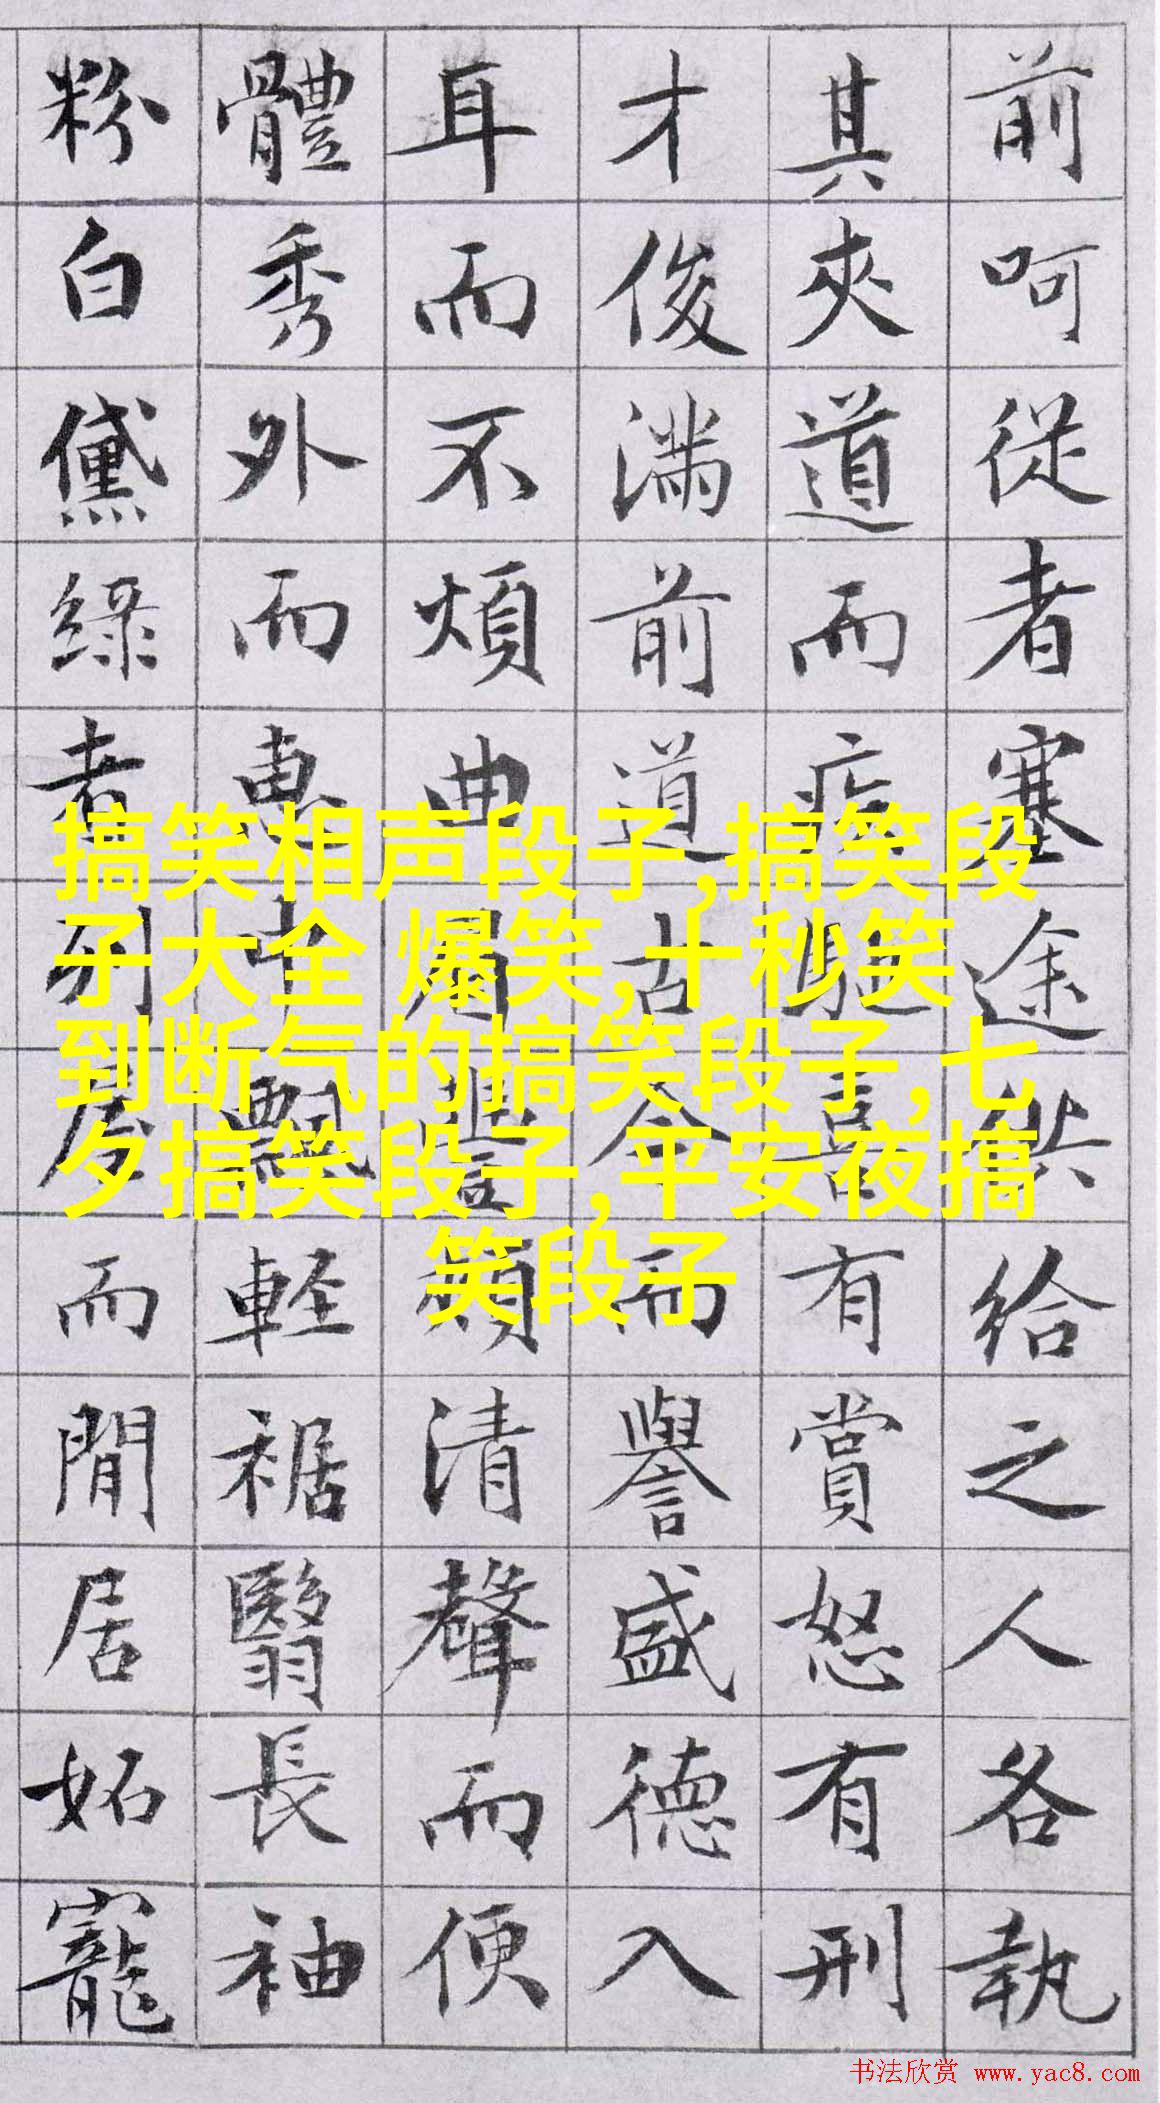 前呵從者塞途供給之人各執
其夾道而疾馳喜有賞怒有刑
才俊滿前道古今而譽盛德入
耳而不煩曲眉豐頰清聲而便
體秀外而惠中飄輕裾翳長袖
粉白黛綠者列屋而閒居妬寵
搞笑相声段子,搞笑段
子大全 爆笑,十秒笑
到断气的搞笑段子,七
夕搞笑段子,平安夜搞
笑段子
书法欣赏 www.yac8.com